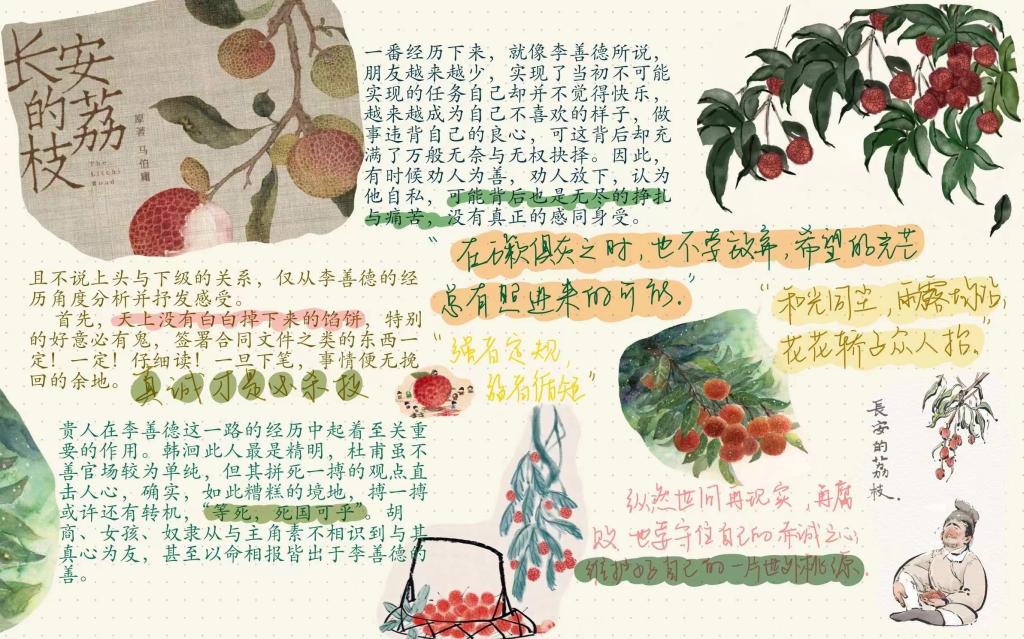 长安
的荔
枝
原著 马伯庸
The
Litchi
Road
一番经历下来，就像李善德所说，
朋友越来越少，实现了当初不可能
实现的任务自己却并不觉得快乐，
越来越成为自己不喜欢的样子，做
事违背自己的良心，可这背后却充
满了万般无奈与无权抉择。因此，
有时候劝人为善，劝人放下，认为
他自私，可能背后也是无尽的挣扎
与痛苦，没有真正的感同身受。
“在砖瓦俱灰之时，也不要放弃，希望的光芒
总有照进来的可能.”
且不说上头与下级的关系，仅从李善德的经
历角度分析并抒发感受。
首先，天上没有白白掉下来的馅饼，特别
的好意必有鬼，签署合同文件之类的东西一
定！一定！仔细读！一旦下笔，事情便无挽
回的余地。
真诚才是必杀技
“强者定规，
弱者循矩”
“和光同尘，雨露均沾，
花花轿子众人抬.”
贵人在李善德这一路的经历中起着至关重
要的作用。韩洄此人最是精明，杜甫虽不
善官场较为单纯，但其拼死一搏的观点直
击人心，确实，如此糟糕的境地，搏一搏
或许还有转机，“等死，死国可乎”。胡
商、女孩、奴隶从与主角素不相识到与其
真心为友，甚至以命相报皆出于李善德的
善。
纵然世间再现实，再腐
败也要守住自己的赤诚之心
维护好自己的一片世外桃源.
長安的荔枝.